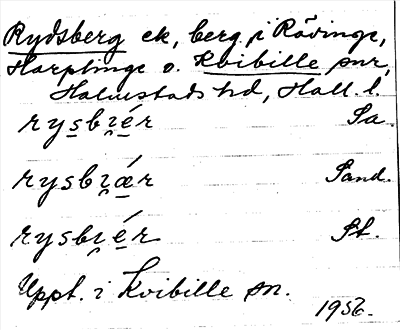 Rydsberg ek, berg i Rävinge,
Harplinge o. Kvibille snr,
Halmstads hd, Hall. l.
rysbɽér Sa.
rysbɽǽr Sand.
rysbɽér St.
Uppt. i Kvibille sn.
1956.